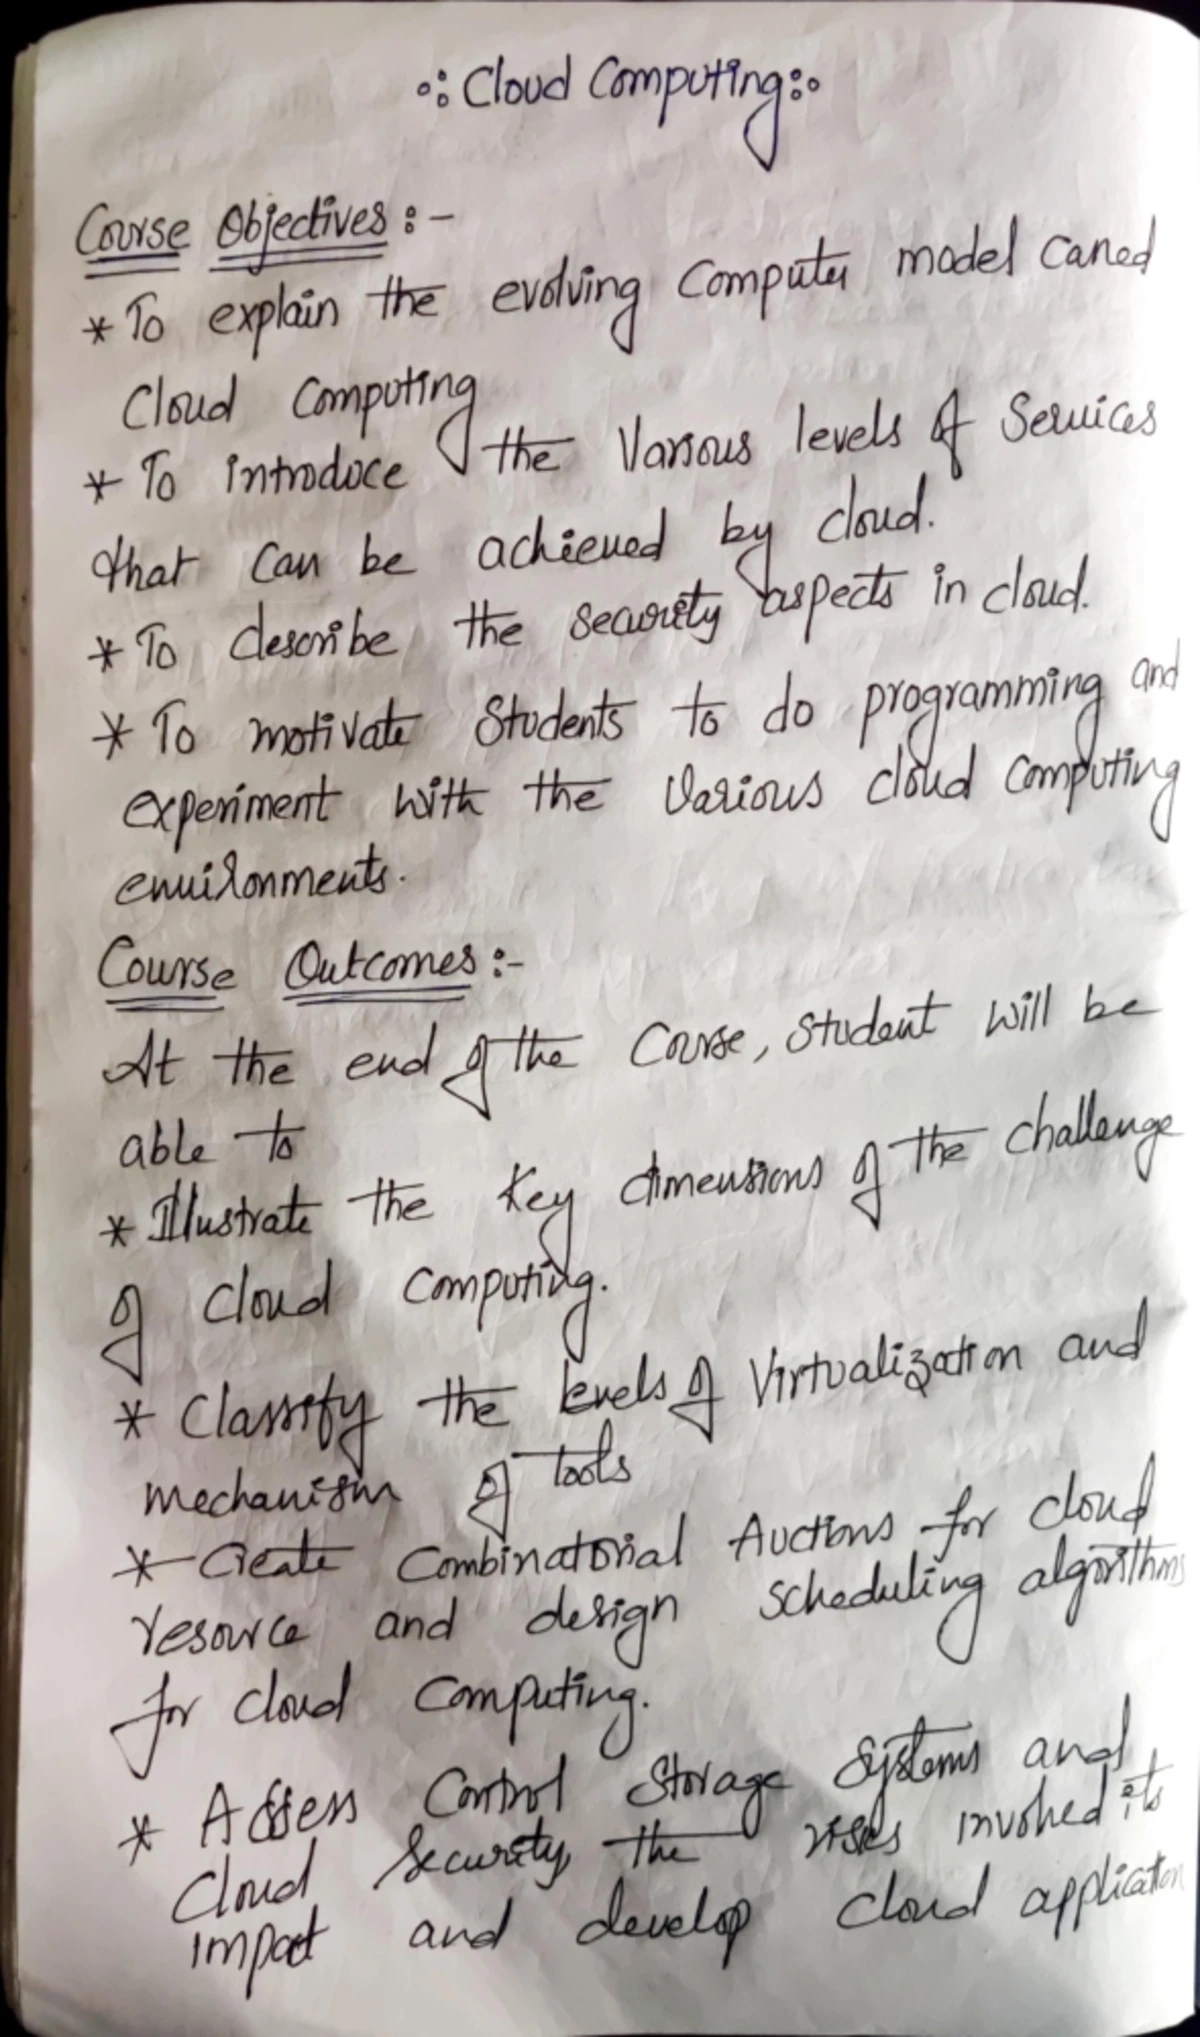 Cloud Computing
Course Objectives :-
* To explain the evolving Computer model caned
Cloud Computing
* To introduce the Various levels of Services
that can be achieved by cloud.
* To describe the security aspects in cloud.
* To motivate Students to do programming and
experiment with the various cloud computing
environments.
Course Outcomes :-
At the end of the Course, Student will be
able to
* Illustrate the Key dimensions of the challenge
of cloud computing.
* Classify the levels of Virtualization and
mechanism of tools
* Create Combinatorial Auctions for cloud
resource and design scheduling algorithms
for cloud computing.
* Assess Control Storage Systems and
Cloud Security, the risks involved its
impact and develop cloud application